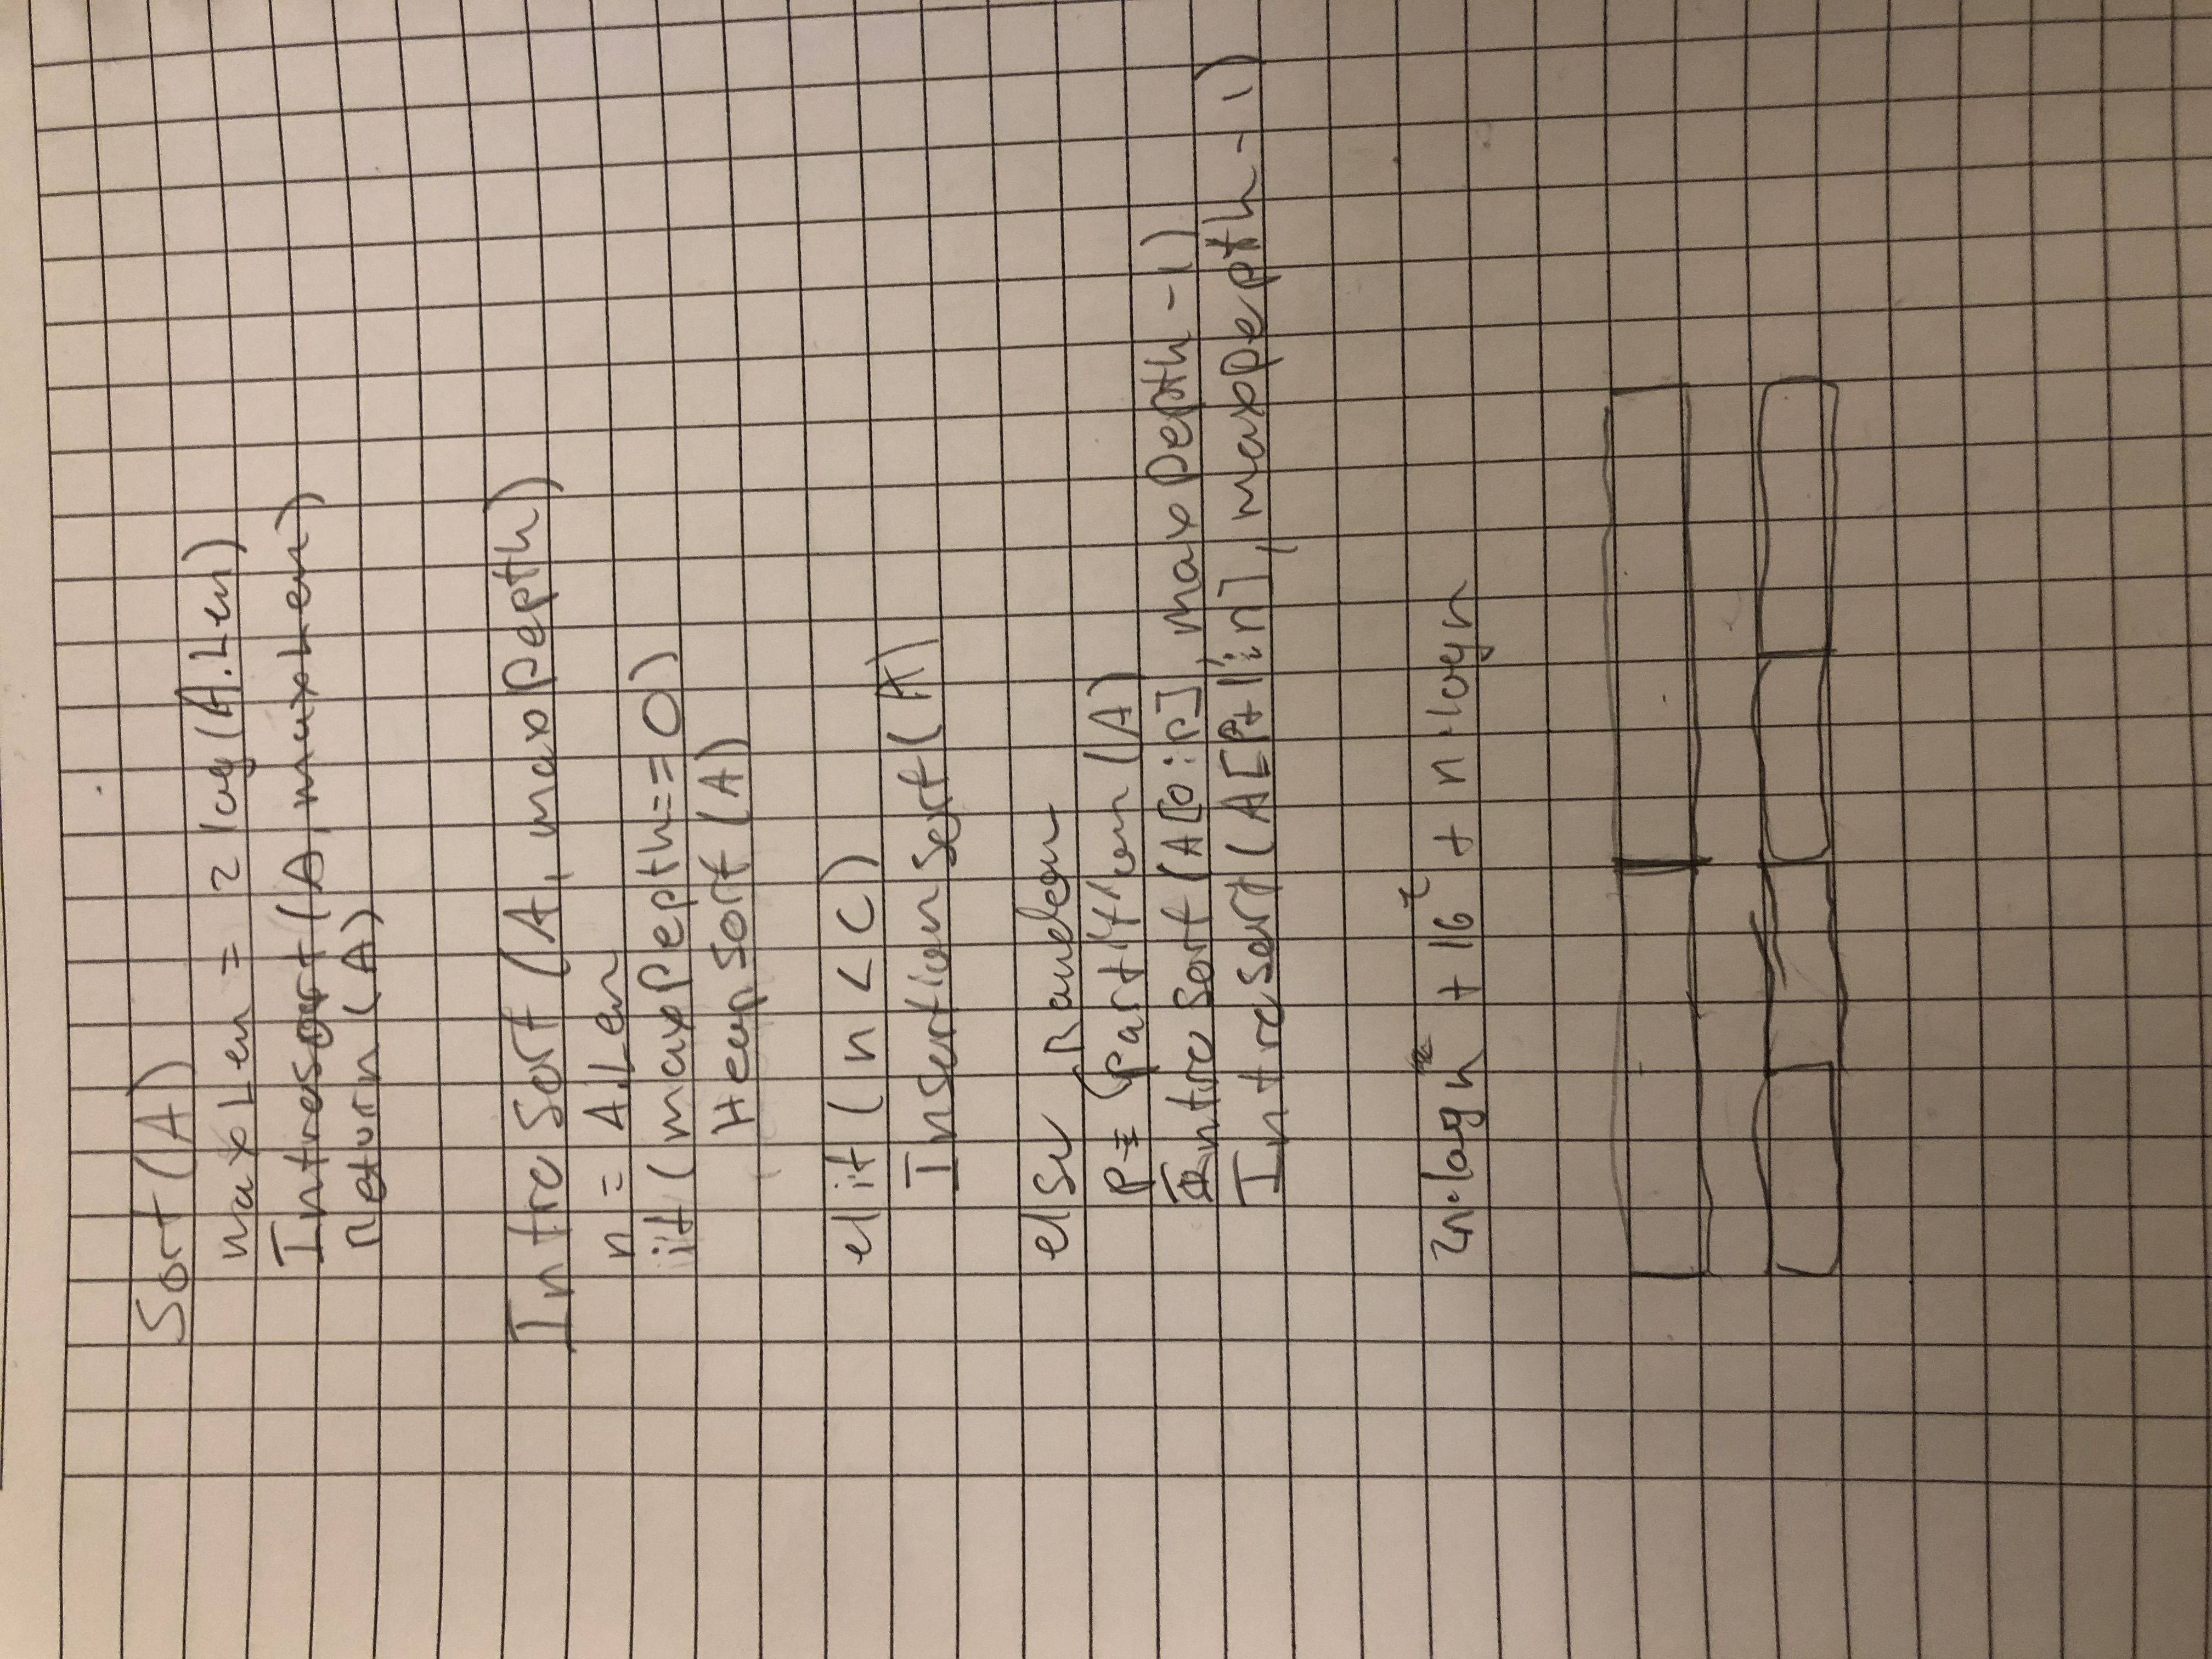 Sort(A)
maxLen = 2 log(A.Len)
Introsort(A, maxLen)
Return(A)
IntroSort(A, maxDepth)
n = A.Len
if (maxDepth == 0)
HeapSort(A)
elif (n < C)
InsertionSort(A)
else Random
p = Partition(A)
IntroSort(A[0:p], maxDepth -1)
IntroSort(A[p+1:n], maxDepth -1)
2n·log n + 16² + n·log n